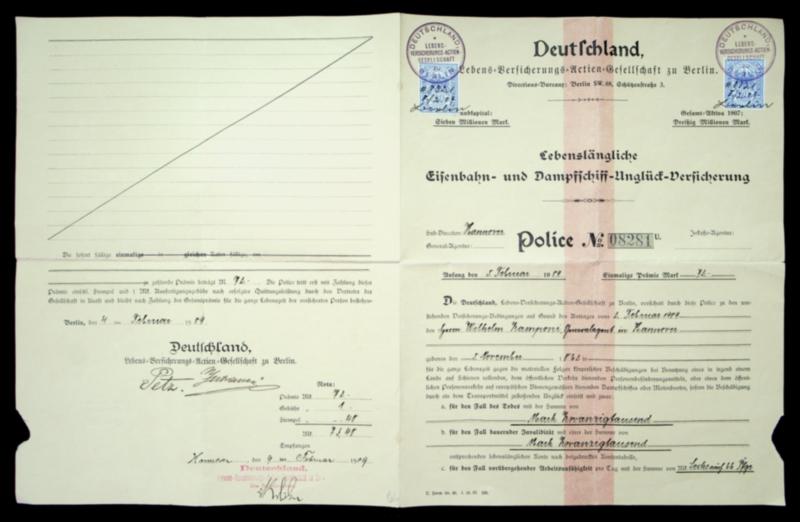 Die sofort fällige einmalige — in gleichen Raten fällige, am
zu zahlende Prämie beträgt M. 92.- Die Police tritt erst mit Zahlung dieser
Prämie einschl. Stempel und 1 Mk. Ausfertigungsgebühr nach erfolgter Quittungsleistung durch den Vertreter der
Gesellschaft in Kraft und bleibt nach Zahlung der Gesamtprämie für die ganze Lebenszeit der versicherten Person bestehen.
Berlin, den 4 ten Februar 1909
Deutschland,
Lebens-Versicherungs-Actien-Gesellschaft zu Berlin.
Nota:
Prämie Mk. 92.-
Gebühr „ 1.-
Stempel „ 48
Mk.
Empfangen
Hannover den 9 ten Februar 1909
Deutschland,
DEUTSCHLAND,
LEBENS-
VERSICHERUNGS-ACTIEN-
GESELLSCHAFT
BERLIN
DEUTSCHLAND,
LEBENS-
VERSICHERUNGS-ACTIEN-
GESELLSCHAFT
BERLIN
Deutschland,
Lebens-Versicherungs-Actien-Gesellschaft zu Berlin.
Directions-Bureau: Berlin SW. 68, Schützenstraße 3.
Grundkapital:
Sieben Millionen Mark.
Gesamt-Aktiva 1907:
Dreißig Millionen Mark.
Lebenslängliche
Eisenbahn- und Dampfschiff-Unglück-Versicherung
Sub-Direction: Hannover
General-Agentur:
Police No. 08281 U.
Inkasso-Agentur:
Anfang den 5. Februar 1909 Einmalige Prämie Mark 92.-
Die Deutschland, Lebens-Versicherungs-Actien-Gesellschaft zu Berlin, versichert durch diese Police zu den
Versicherungs-Bedingungen auf Grund des Antrages vom 2. Februar 1909
den Herrn Wilhelm Kamponi, Generalagent in Hannover
geboren den 5. November
für die ganze Lebenszeit gegen die materiellen Folgen körperlicher Beschädigungen bei Benutzung eines in irgend einem
Lande auf Schienen laufenden, dem öffentlichen Verkehr dienenden Personenbeförderungsmittels, oder eines dem öffentlichen
Personenverkehr auf europäischen Binnengewässern dienenden Dampfschiffes oder Motorbootes, sofern die Beschädigung
durch ein dem Transportmittel zustoßender Unglück eintritt und zwar:
a. für den Fall des Todes mit der Summe von
Mark Zwanzigtausend
b. für den Fall dauernder Invalidität mit einer der Summe von
Mark Zwanzigtausend
entsprechenden lebenslänglichen Rente nach beigedruckter Rententabelle,
c. für den Fall vorübergehender Arbeitsunfähigkeit pro Tag mit der Summe von Mk. Sechs auf 66 Pfge.